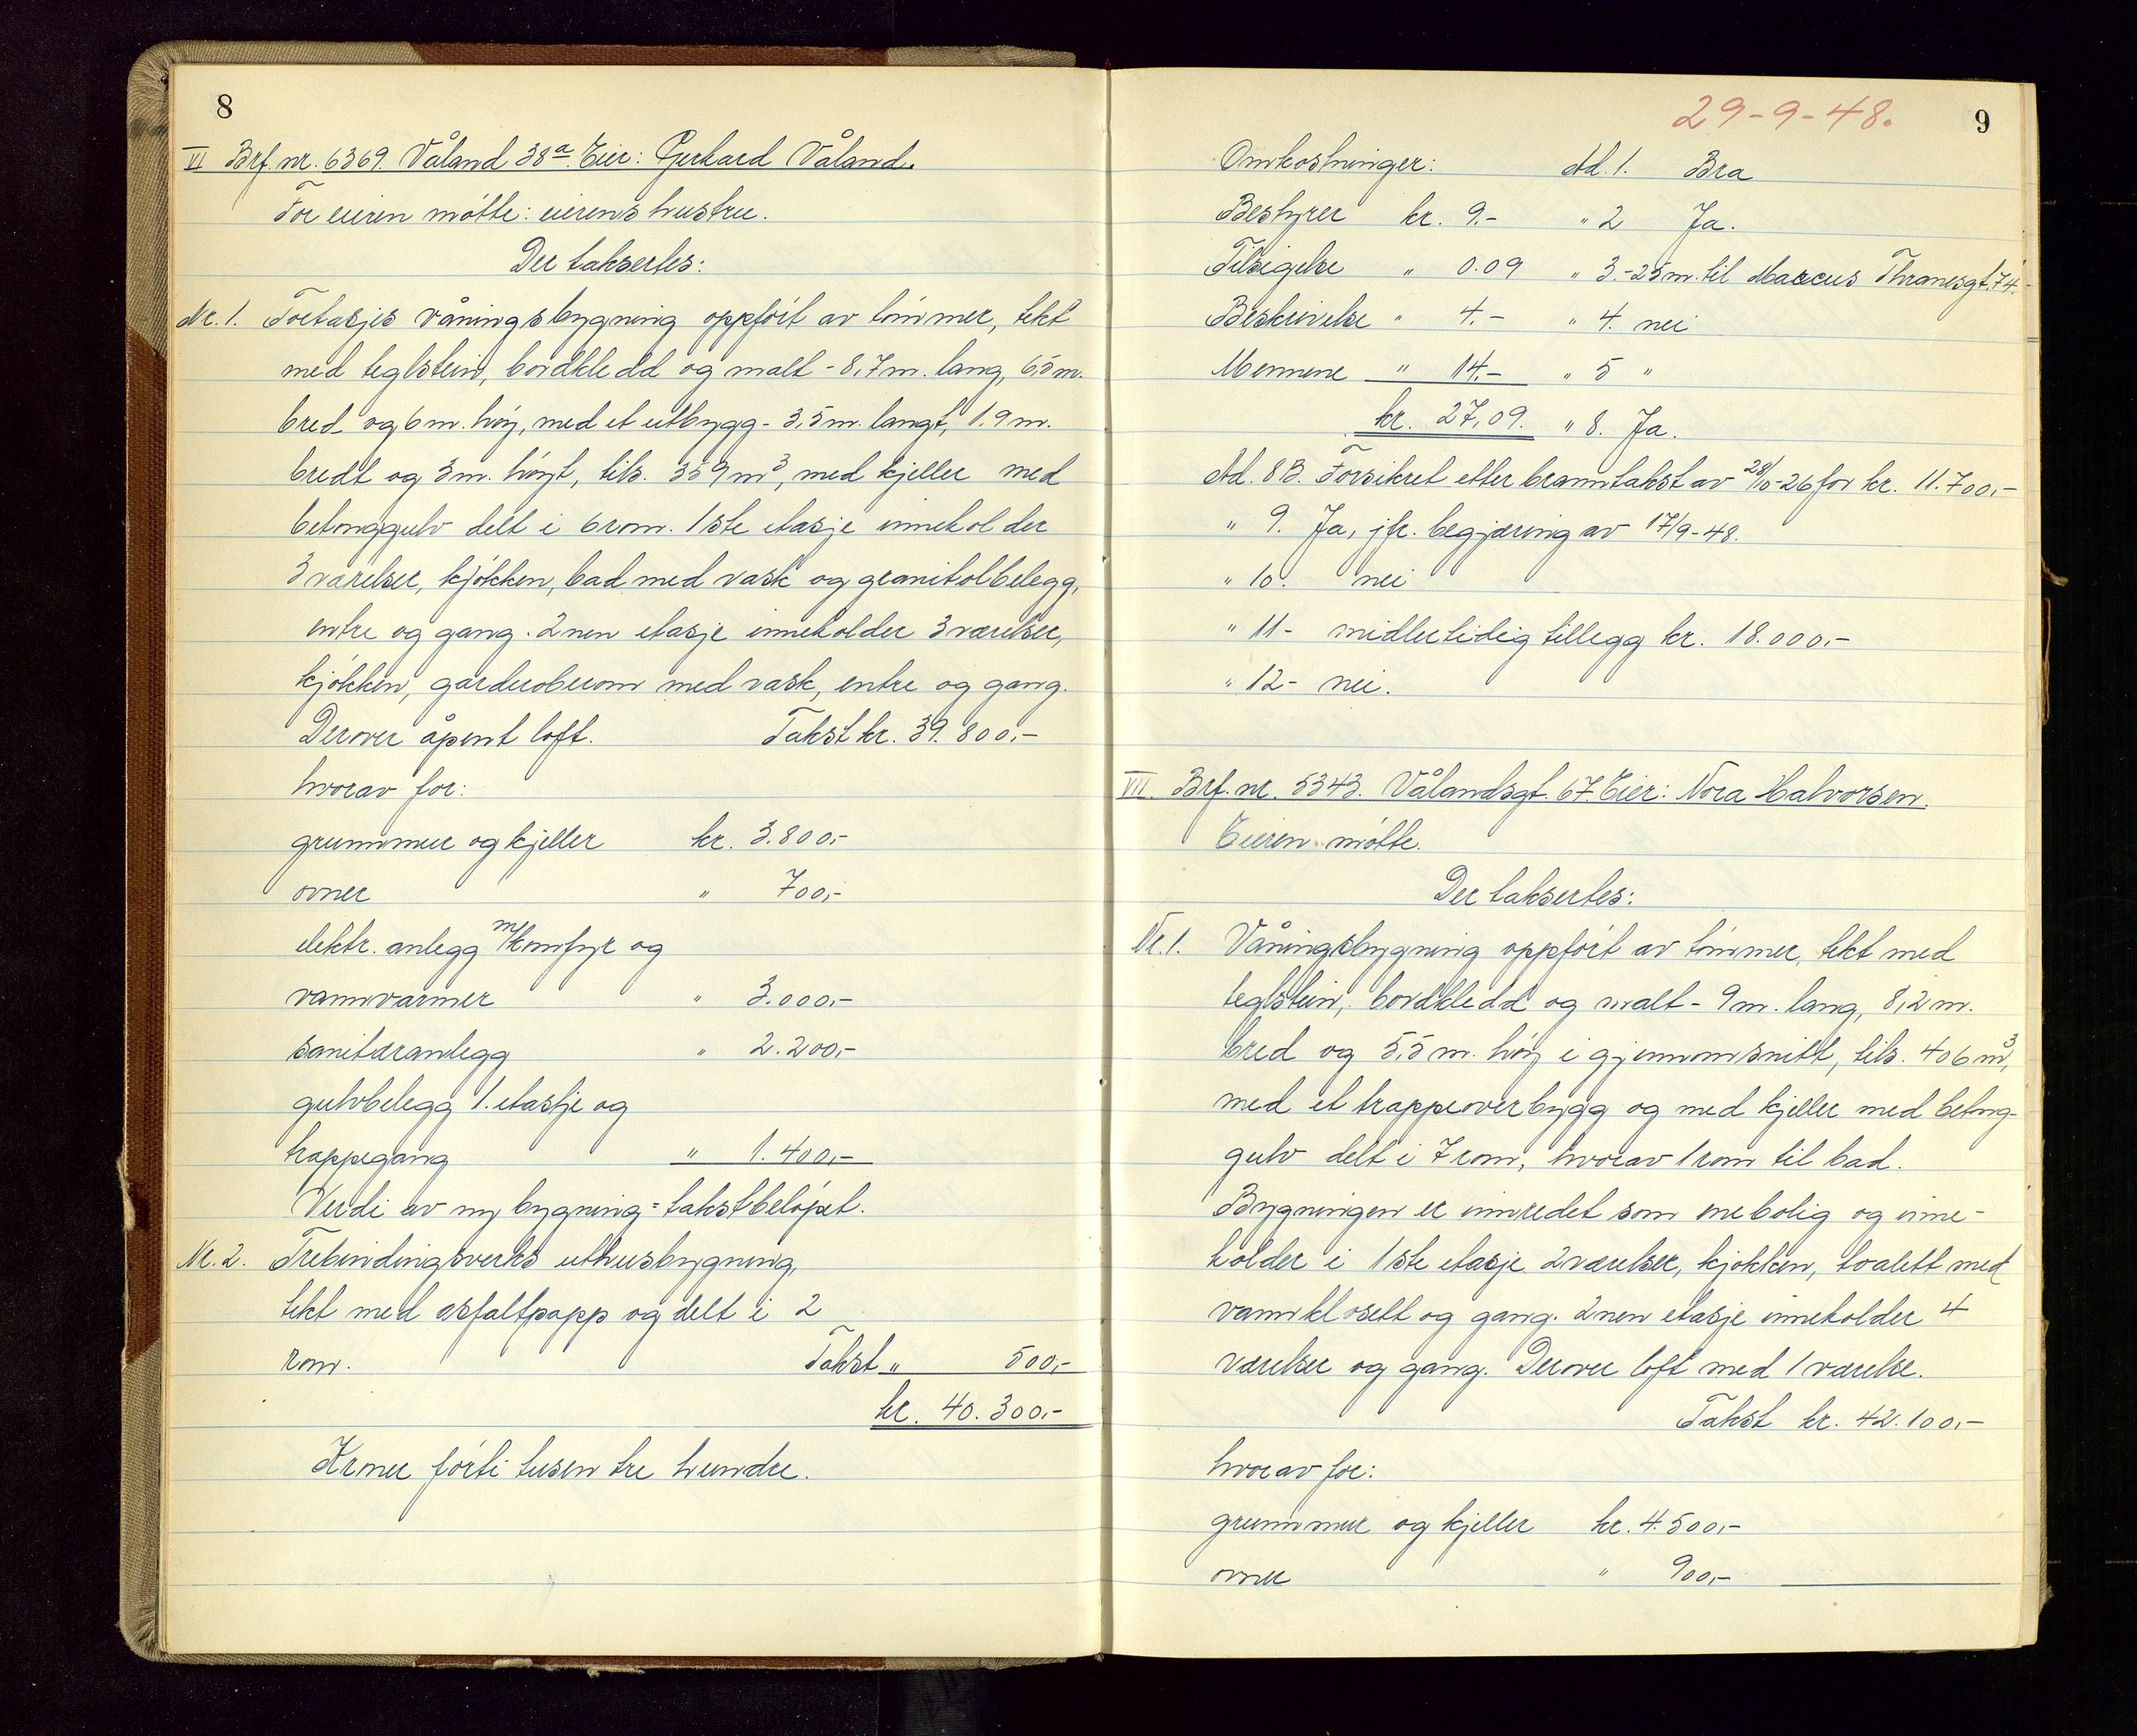 8
VI Brf. nr. 6369. Våland 38ª. Eier: Gerhard Våland.
For eieren møtte: eierens hustru.
Der taksertes:
Nr. 1. Toetasjes våningsbygning oppført av tømmer, tekt
med teglstein, bordkledd og malt - 8,7 m. lang, 6,5 m.
bred og 6 m. høy, med et utbygg - 3,5 m. langt, 1.9 m.
bredt og 3 m. høyt, tils. 359 m³, med kjeller med
betonggulv delt i 6 rom. 1ste etasje inneholder
3 værelser, kjøkken, bad med vask og granitolbelegg,
entre og gang. 2nen etasje inneholder 3 værelser,
kjøkken, garderoberom med vask, entre og gang.
Derover åpent loft. Takst kr. 39.800,-
hvorav for:
grunnmur og kjeller kr. 3.800,-
ovner " 700,-
elektr. anlegg m/komfyr og
vannvarmer " 3.000,-
sanitæranlegg " 2.200,-
gulvbelegg 1. etasje og
trappegang " 1.400,-
Verdi av ny bygning = takstbeløpet.
Nr. 2. Trebindingsverks uthusbygning,
tekt med asfaltpapp og delt i 2
rom. Takst " 500,-
kr. 40.300,-
Kroner førti tusen tre hundre.
29-9-48.
9
Omkostninger: Ad. 1. Bra
Bestyrer kr. 9.- " 2 Ja.
Tilsigelse " 0.09 " 3.-25 m. til Marcus Thranesgt. 74.-
Beskrivelse " 4.- " 4. nei
Mennene " 14.- " 5 "
kr. 27,09. " 8. Ja.
Ad. 8B. Forsikret etter branntakst av 28/10-26 for kr. 11.700,-
" 9. Ja, jfr. begjæring av 17/9-48.
" 10. nei
" 11- midlertidig tillegg kr. 18.000,-
" 12- nei.
VII. Brf. nr. 5343. Vålandsgt. 67. Eier: Nora Halvorsen.
Eieren møtte.
Der taksertes:
Nr. 1. Våningsbygning oppført av tømmer, tekt med
teglstein, bordkledd og malt - 9 m. lang, 8,2 m.
bred og 5,5 m. høy i gjennomsnitt, tils. 406 m³,
med et trappeoverbygg og med kjeller med betong-
gulv delt i 7 rom, hvorav 1 rom til bad.
Bygningen er innredet som enebolig og inne-
holder i 1ste etasje 2 værelser, kjøkken, toalett med
vannklosett og gang. 2nen etasje inneholder 4
værelser og gang. Derover loft med 1 værelse.
Takst kr. 42.100,-
hvorav for:
grunnmur og kjeller kr. 4.500,-
ovner " 900,-